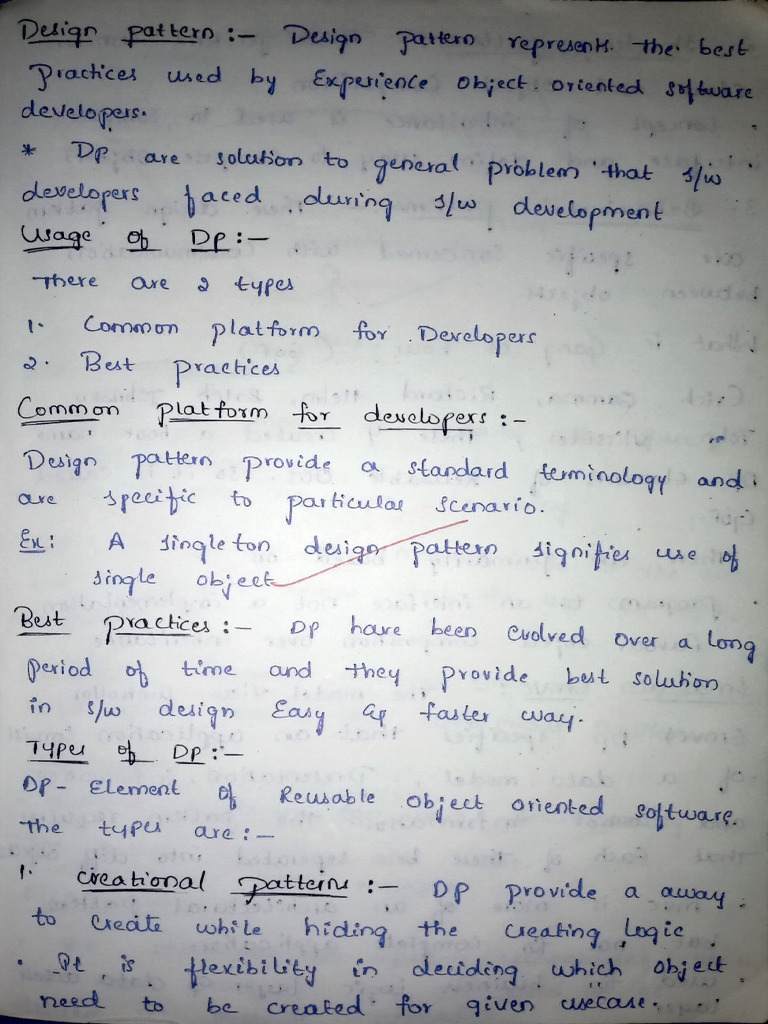 Design pattern :- Design pattern represents the best
Practices used by Experience object oriented software
developers.
* DP are solution to general problem that s/w
developers faced during s/w development
Usage of DP :-
There are 2 types
1. Common platform for Developers
2. Best practices
Common platform for developers :-
Design pattern provide a standard terminology and
are specific to particular scenario.
Ex: A singleton design pattern signifies use of
single object
Best practices :- DP have been evolved over a long
period of time and they provide best solution
in s/w design Easy & faster way.
Types of DP :-
DP - Element of Reusable object oriented software.
The types are :-
1. Creational patterns :- DP provide a away
to create while hiding the creating logic
. It is flexibility in deciding which object
need to be created for given usecase.